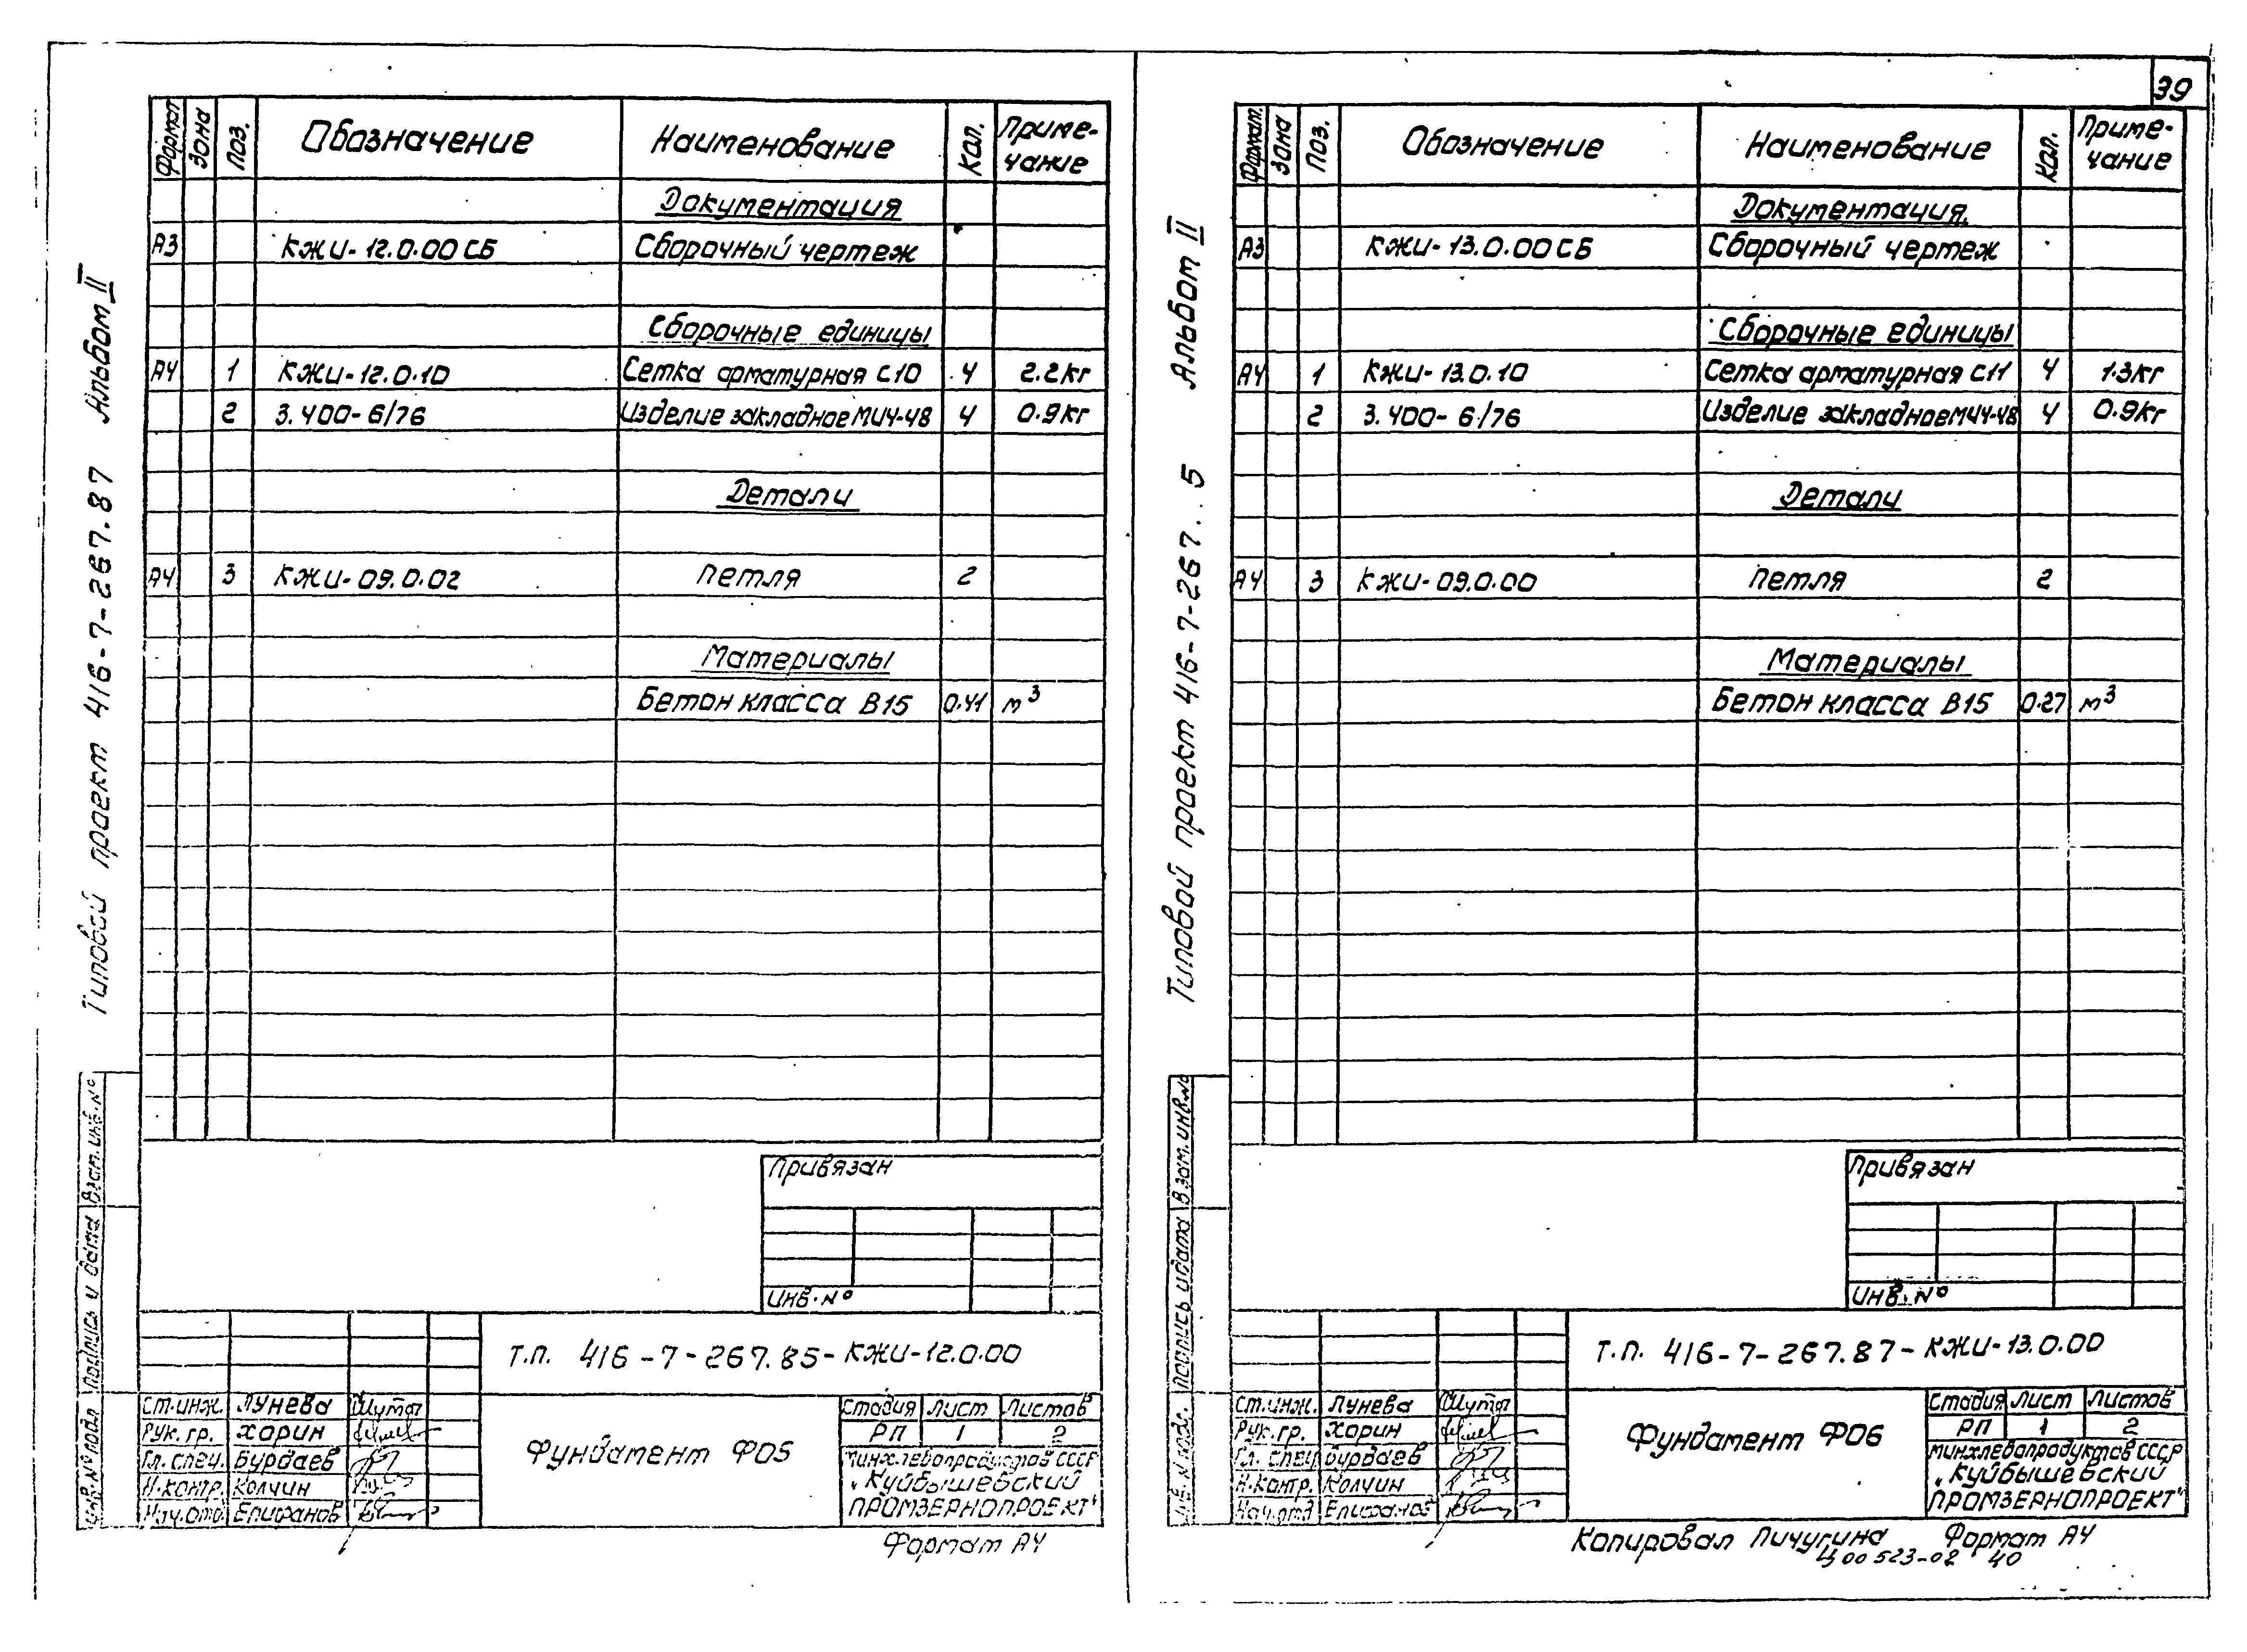 Типовой проект 416-7-267.87 Альбом II
Формат Зона Поз. Обозначение Наименование Кол. Приме-
чание
Документация
А3 КЖИ-12.0.00 СБ Сборочный чертеж
Сборочные единицы
А4 1 КЖИ-12.0.10 Сетка арматурная С10 4 2.2кг
2 3.400-6/76 Изделие закладное МИ4-48 4 0.9кг
Детали
А4 3 КЖИ-09.0.02 Петля 2
Материалы
Бетон класса В15 0.41 м³
Привязан
Инв. №
Взам. инв. №
Подпись и дата
Инв. № подл.
Т.П. 416-7-267.85-КЖИ-12.0.00
Ст.инж. Лунева
Рук. гр. Харин
Гл. спец. Бурдаев
Н.контр. Колчин
Нач.отд. Епифанов
Фундамент Ф05
Стадия Лист Листов
РП 1 2
Минхлебопродуктов СССР
„Куйбышевский
ПРОМЗЕРНОПРОЕКТ"
Формат А4
39
Типовой проект 416-7-267. . 5 Альбом II
Формат. Зона Поз. Обозначение Наименование Кол. Приме-
чание
Документация.
А3 КЖИ-13.0.00 СБ Сборочный чертеж
Сборочные единицы
А4 1 КЖИ-13.0.10 Сетка арматурная С11 4 1.3кг
2 3.400-6/76 Изделие закладное МИ4-48 4 0.9кг
Детали
А4 3 КЖИ-09.0.00 Петля 2
Материалы
Бетон класса В15 0.27 м³
Привязан
Инв. №
Взам. инв. №
Подпись и дата
Инв. № подл.
Т.П. 416-7-267.87-КЖИ-13.0.00
Ст.инж. Лунева
Рук. гр. Харин
Гл. спец Бурдаев
Н.контр. Колчин
Нач.отд Епифанов
Фундамент Ф06
Стадия Лист Листов
РП 1 2
Минхлебопродуктов СССР
„Куйбышевский
ПРОМЗЕРНОПРОЕКТ"
Копировал Пичугина Формат А4
Ц00523-02 40